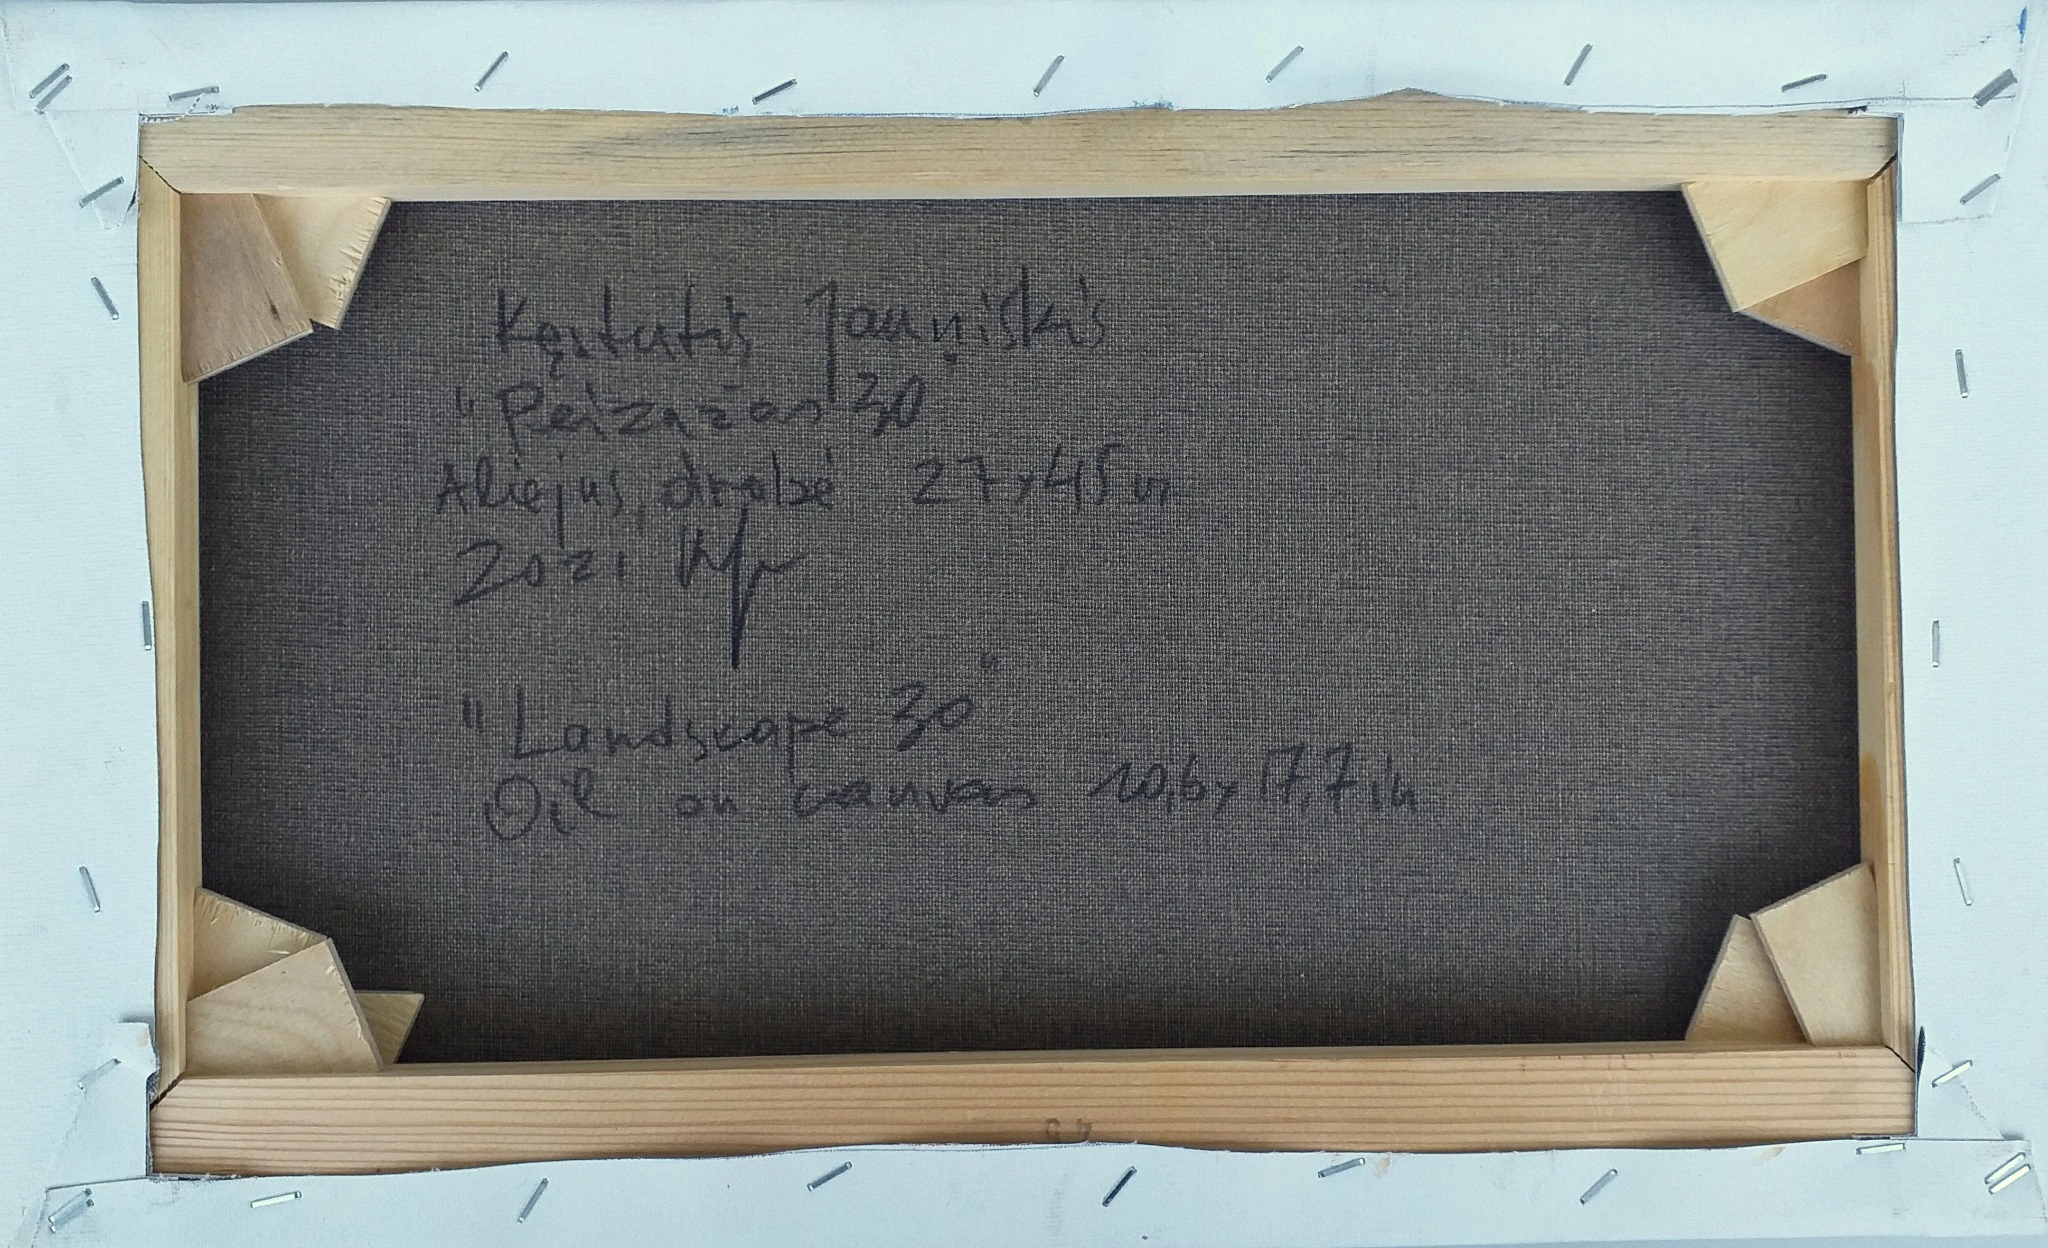 Kęstutis Jauniškis
"Peizažas 30
Aliejus, drobė 27x45 cm
2021
"Landscape 30"
Oil on canvas 10,6x17,7 in